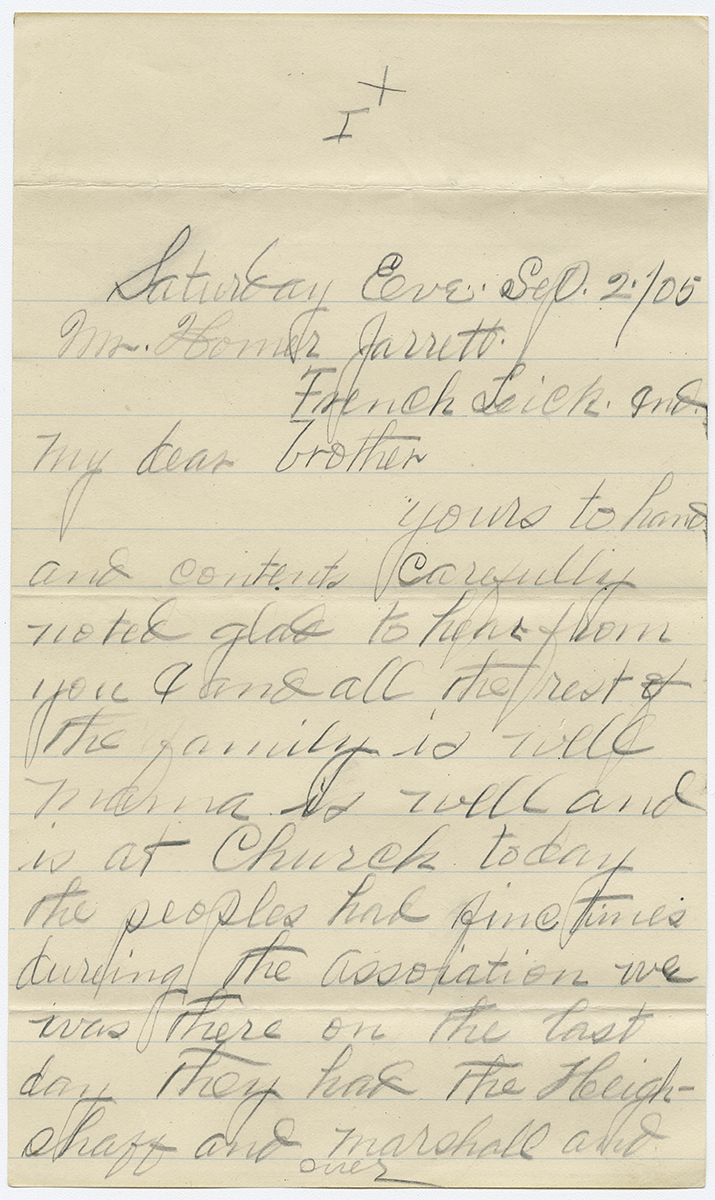 +
I
Saturday Eve. Sep. 2./05
Mr. Homer Jarrett.
French Leick. Ind.
my dear brother
yours to hand
and contents carefully
noted glad to hear from
you I and all the rest of
the family is well
mama is well and
is at Church today
the peoples had fine times
dureing the assoiation we
was there on the last
day they had the Heigh-
shaff and marshall and
over